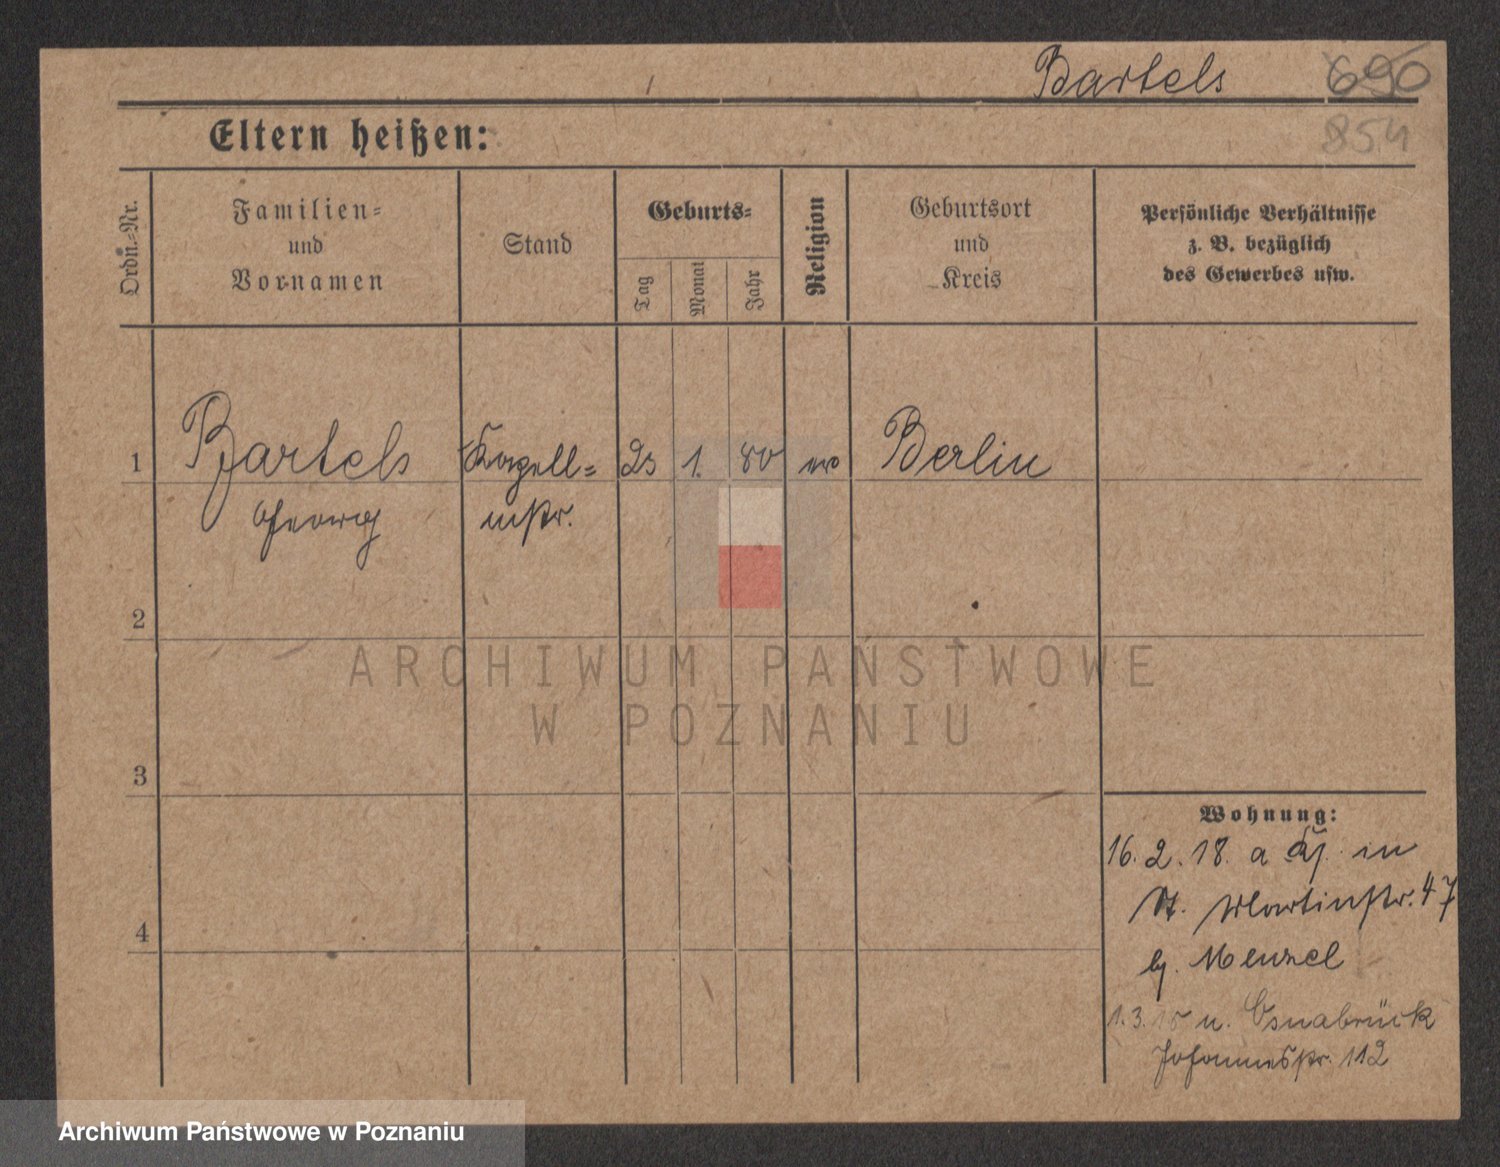 Bartels 690
854
Eltern heißen:
Ordn.-Nr.
Familien-
und
Vornamen
Stand
Geburts-
Tag
Monat
Jahr
Religion
Geburtsort
und
Kreis
Persönliche Verhältnisse
z. B. bezüglich
des Gewerbes usw.
1 Bartels Kapell= 23 1. 80 ev Berlin
Georg mstr.
2
ARCHIWUM PAŃSTWOWE
W POZNANIU
3
Wohnung:
16. 2. 18. a in
St. Martinstr. 47
b. Menzel
4
1. 3. n. Osnabrück
Johannesstr. 112
Archiwum Państwowe w Poznaniu